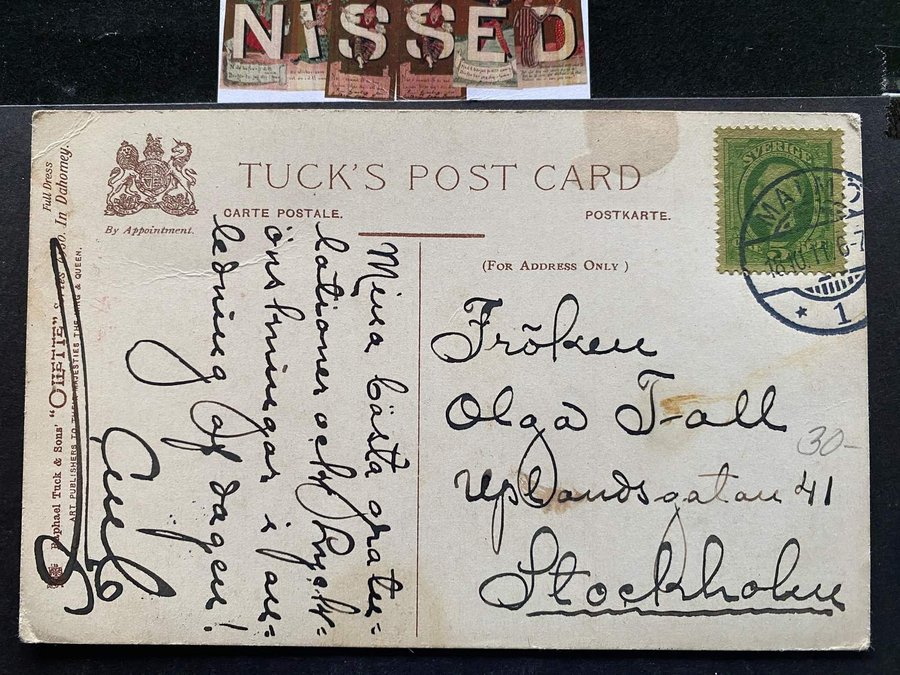 NISSED
Full Dress
In Dahomey.
Raphael Tuck & Sons' "OILETTE"
ART PUBLISHERS TO THEIR MAJESTIES THE KING & QUEEN.
By Appointment.
TUCK'S POST CARD
CARTE POSTALE.
POSTKARTE.
(FOR ADDRESS ONLY)
Mina bästa gratu=
lationer och lyck=
önskningar i an=
ledning af dagen!
SVERIGE
MALMÖ
1
Fröken
Olga Fall
Uplandsgatan 41
Stockholm
30-